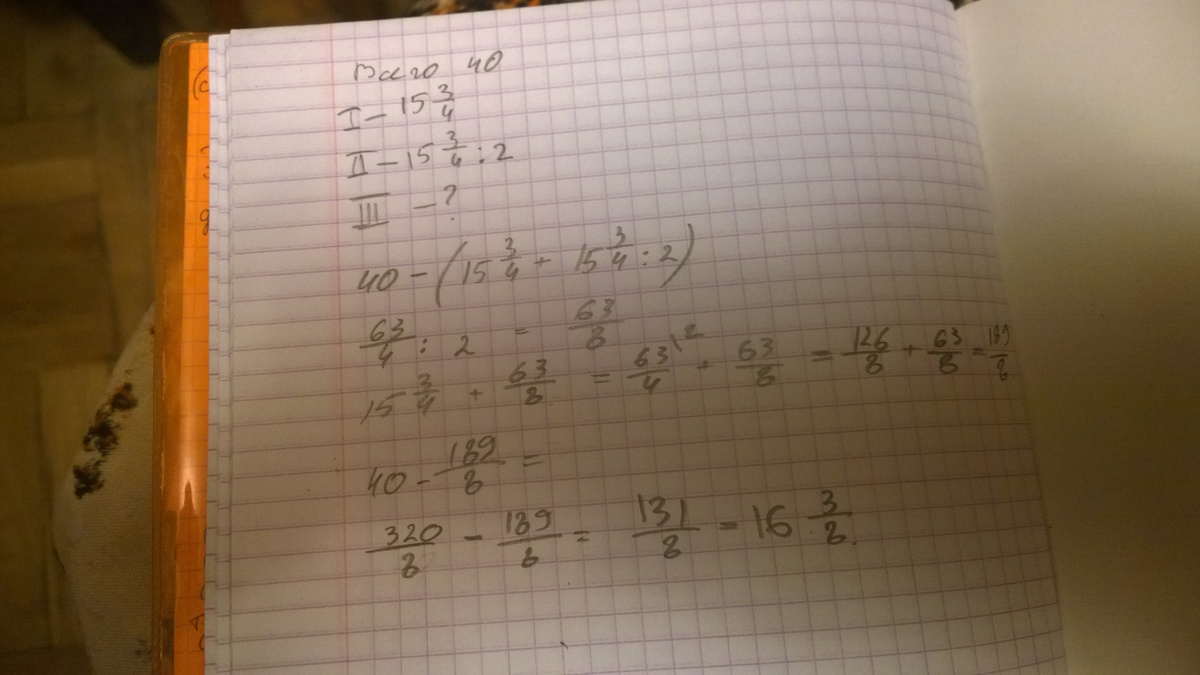 Всего 40
I – 15 3/4
II – 15 3/4 : 2
III – ?
40 – (15 3/4 + 15 3/4 : 2)
63/4 : 2 = 63/8
15 3/4 + 63/8 = 63/4 \2 + 63/8 = 126/8 + 63/8 = 189/8
40 – 189/8 =
320/8 – 189/8 = 131/8 = 16 3/8.